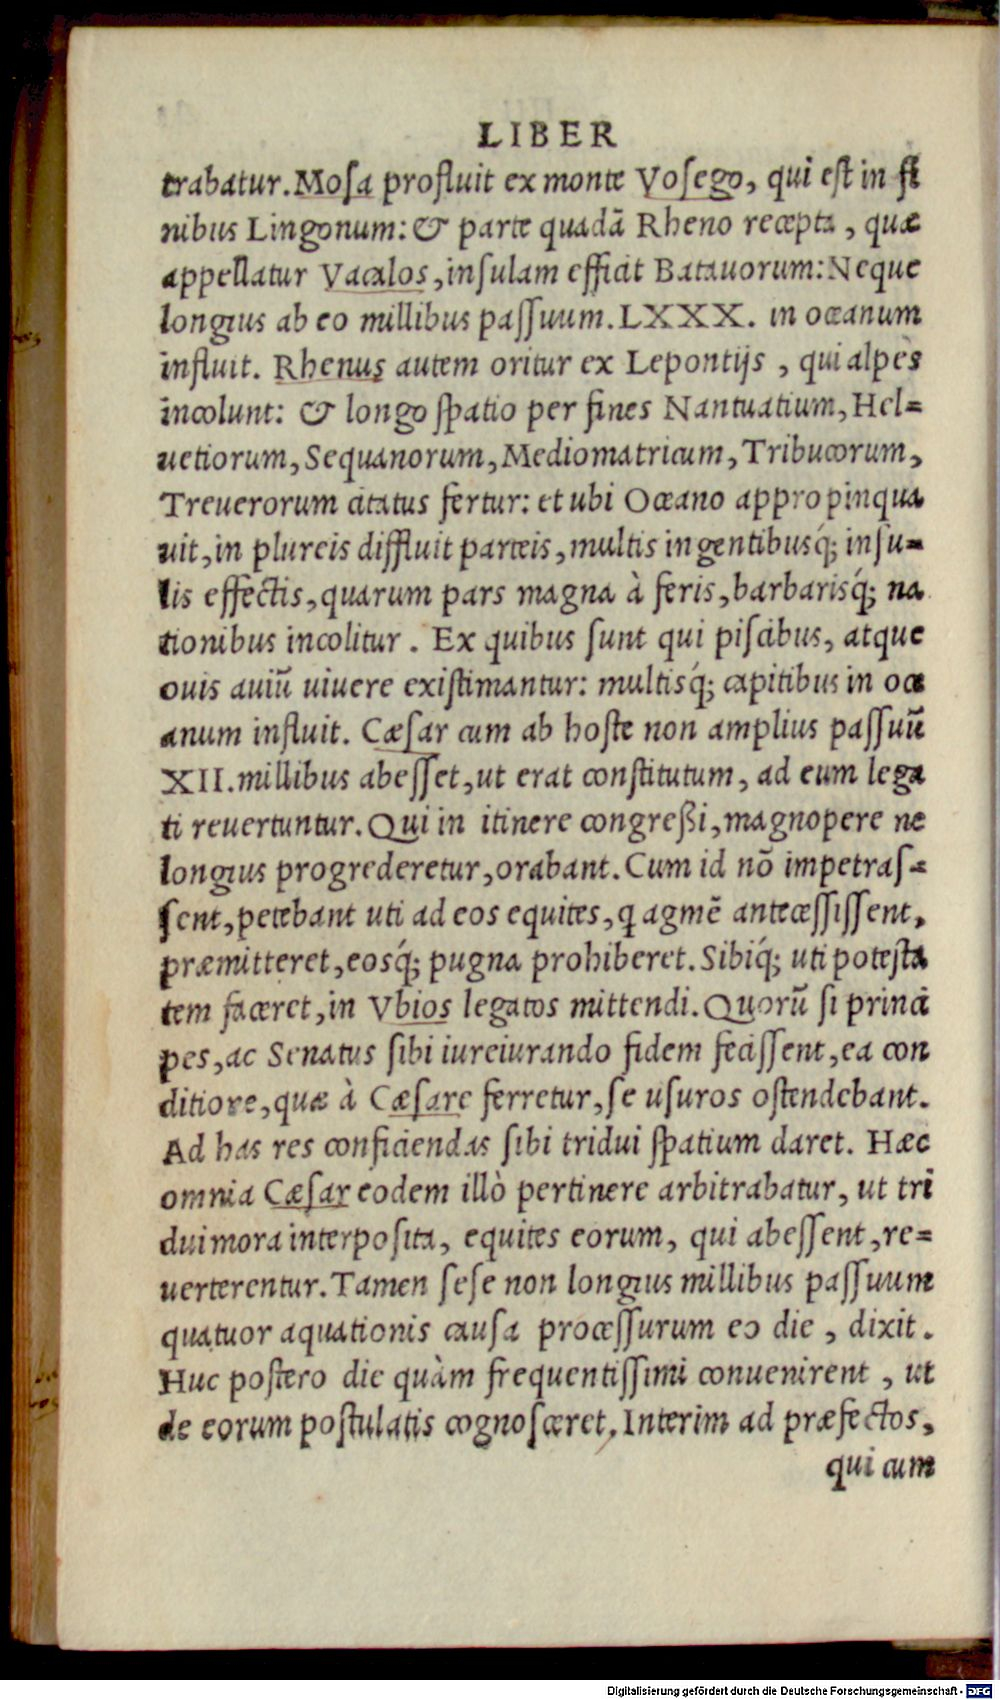 LIBER
trabatur. Mosa profluit ex monte Vosego, qui est in fi
nibus Lingonum: & parte quadā Rheno recepta, quæ
appellatur Vacalos, insulam efficit Batauorum: Neque
longius ab eo millibus passuum. LXXX. in oceanum
influit. Rhenus autem oritur ex Lepontijs, qui alpes
incolunt: & longo spatio per fines Nantuatium, Hel=
uetiorum, Sequanorum, Mediomatricum, Tribucorum,
Treuerorum citatus fertur: et ubi Oceano appropinqua
uit, in plureis diffluit parteis, multis ingentibusq́; insu=
lis effectis, quarum pars magna à feris, barbarisq́; na
tionibus incolitur. Ex quibus sunt qui piscibus, atque
ouis auiū uiuere existimantur: multisq́; capitibus in oce
anum influit. Cæsar cum ab hoste non amplius passuū
XII. millibus abesset, ut erat constitutum, ad eum lega
ti reuertuntur. Qui in itinere congreßi, magnopere ne
longius progrederetur, orabant. Cum id nō impetras=
sent, petebant uti ad eos equites, q agmē antecessissent,
præmitteret, eosq́; pugna prohiberet. Sibiq́; uti potesta
tem faceret, in Vbios legatos mittendi. Quorū si princi
pes, ac Senatus sibi iureiurando fidem fecissent, ea con
ditiore, quæ à Cæsare ferretur, se usuros ostendebant.
Ad has res conficiendas sibi tridui spatium daret. Hæc
omnia Cæsar eodem illò pertinere arbitrabatur, ut tri
dui mora interposita, equites eorum, qui abessent, re=
uerterentur. Tamen sese non longius millibus passuum
quatuor aquationis causa processurum eo die, dixit.
Huc postero die quàm frequentissimi conuenirent, ut
de eorum postulatis cognosceret, Interim ad præfectos,
qui cum
Digitalisierung gefördert durch die Deutsche Forschungsgemeinschaft - DFG